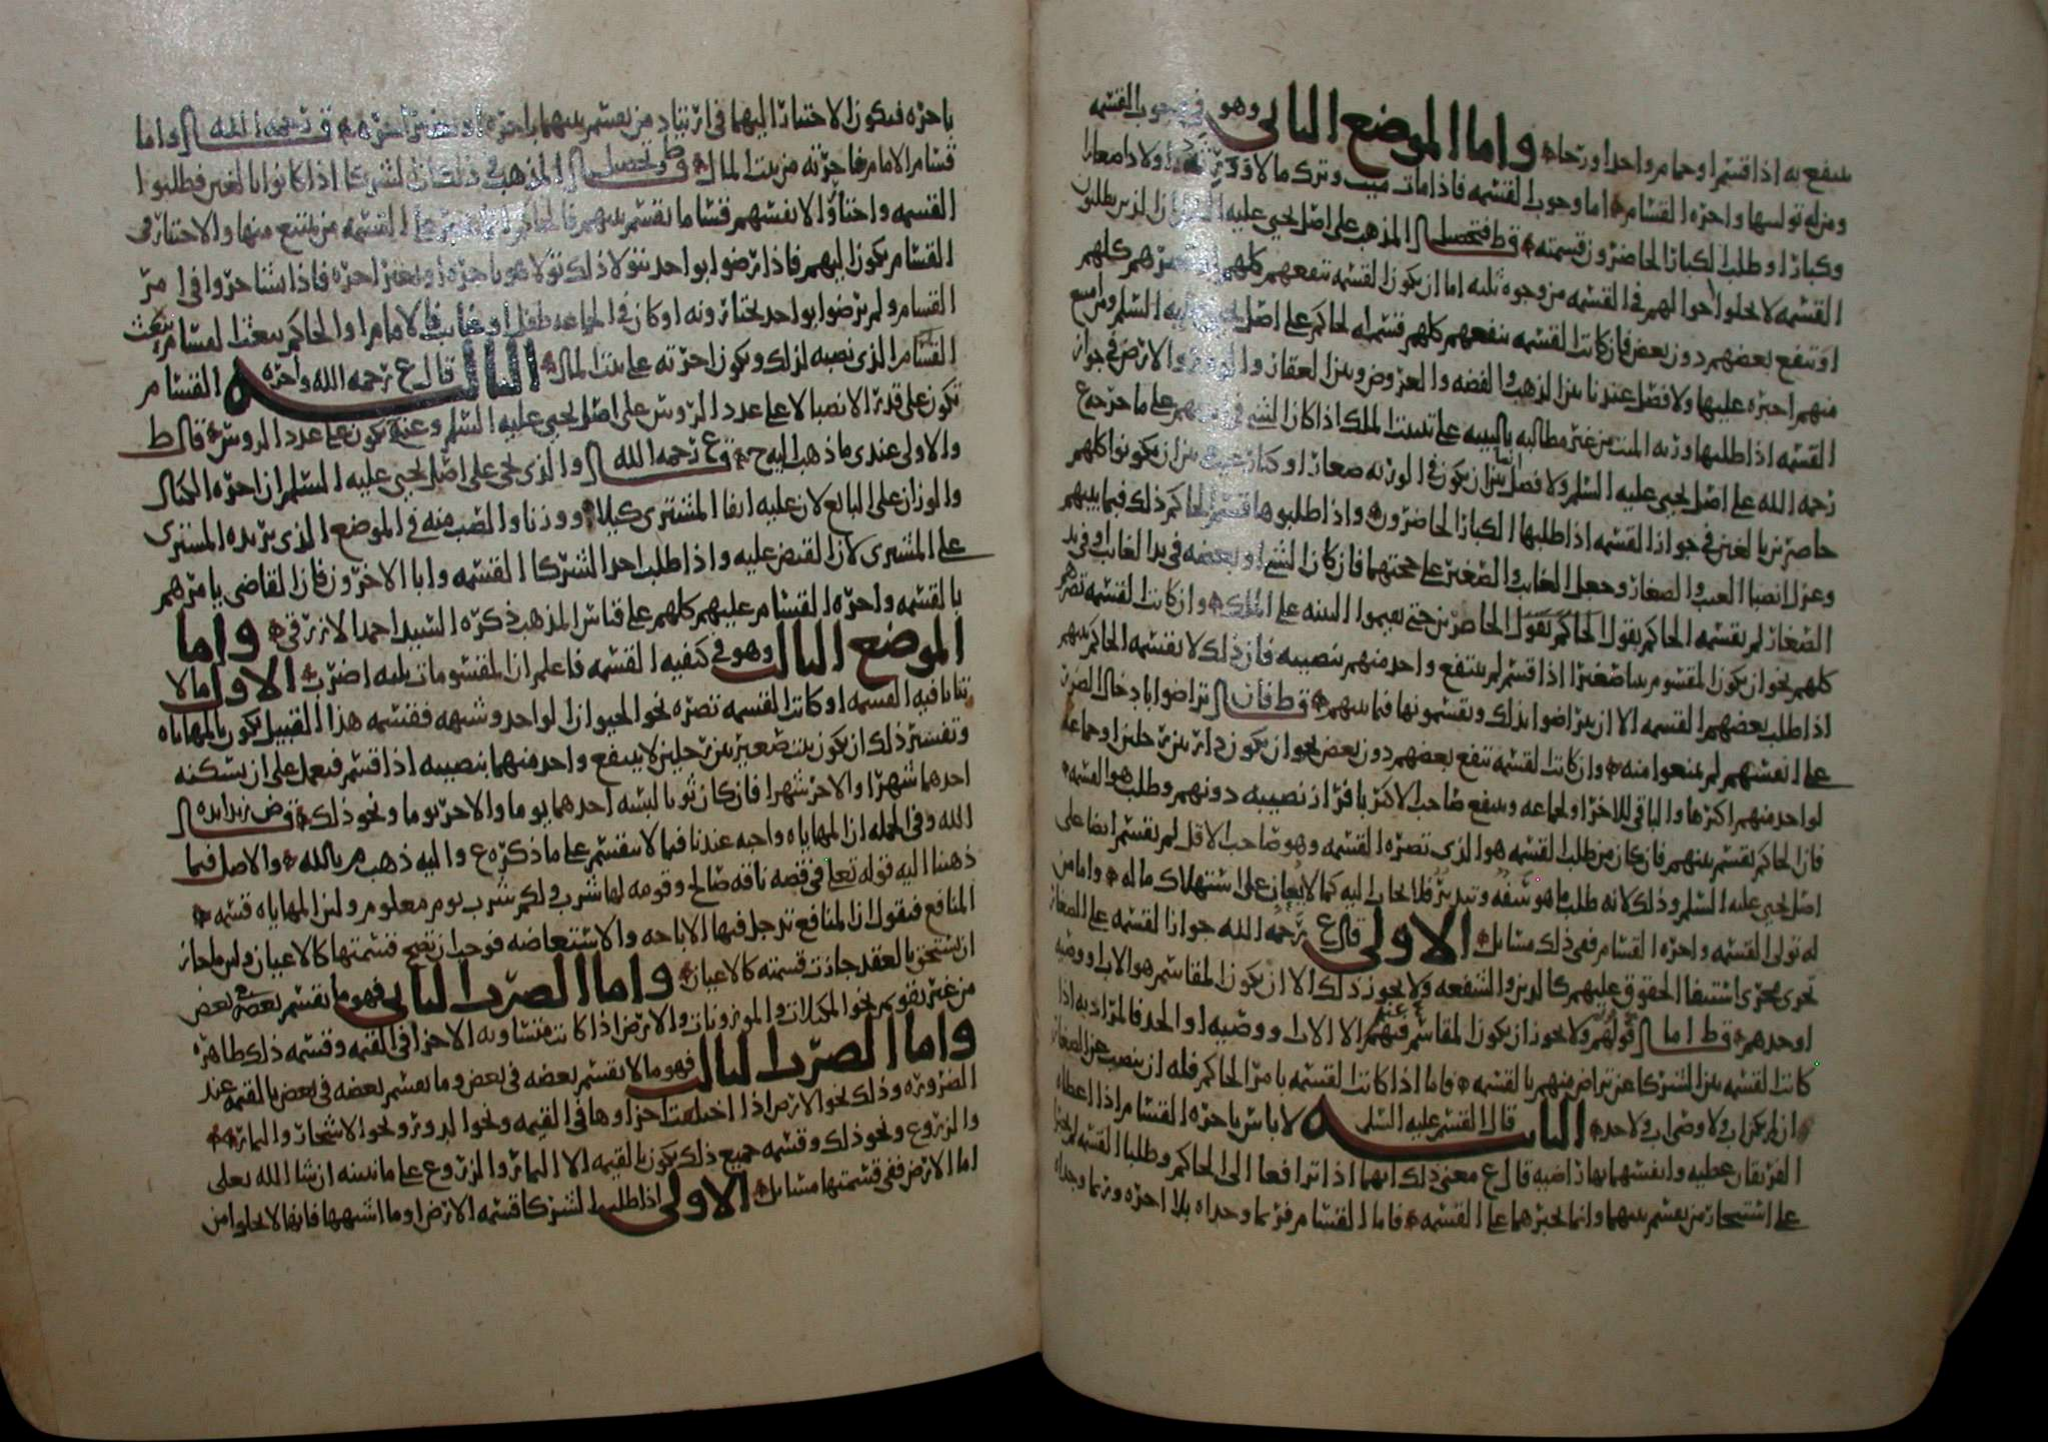 ينتفع به اذا قسم او حمام واحد او رحا واما الموضع الثاني وهو في وجوب القسمه
ومن له توليها واجره القسام اما وجوب القسمه فاذا مات ميت وترك مالا وورثه اولادا صغارا
وكبارا وطلب الكبار الحاضرون قسمته قط فتحصيل المذهب على اصل يحيى عليه السلم ان الذين يطلبون
القسمه لا يخلوا حالهم في القسمه من وجوه ثلثه اما ان يكون القسمه تنفعهم كلهم او تضرهم كلهم
او تنفع بعضهم دون بعض فان كانت القسمه تنفعهم كلهم قسمه الحاكم على اصل يحيى عليه السلم ومن امتنع
منهم اجبره عليها ولا فصل عندنا بين الذهب والفضه والعروض وبين العقار والدور والارض في جواز
القسمه اذا طلبها ورثه الميت من غير مطالبه بالبينه على تثبيت الملك اذا كان الشي في ايديهم على ما خرجه ع
رحمه الله على اصل يحيى عليه السلم ولا فصل بين ان يكون في الورثه صغار او كبار غيب وبين ان يكونوا كلهم
حاضرين بالغين في جواز القسمه اذا طلبها الكبار الحاضرون واذا طلبوها قسم الحاكم ذلك فيما بينهم
وعزل انصبا الغيب والصغار وجعل الغايب والصغير على حجتهما فان كان الشي او بعضه في يد الغايب او في يد
الصغار لم يقسمه الحاكم بقول الحاضرين حتى يقيموا البينه على الملك وان كانت القسمه تضرهم
كلهم نحو ان يكون المقسوم شيا صغيرا اذا قسم لم ينتفع واحد منهم بنصيبه فان ذلك لا يقسمه الحاكم بينهم
اذا طلب بعضهم القسمه الا ان يتراضوا بذلك ويقسمونها فيما بينهم قط فان تراضوا بادخال الضرر
على انفسهم لم يمنعوا منه وان كانت القسمه تنفع بعضهم دون بعض نحو ان يكون دار بين رجلين او جماعه
لواحد منهم اكثرها والباقي للاخر او لجماعه وينتفع صاحب الاكثر بافراز نصيبه دونهم وطلب هو القسمه
فان الحاكم يقسم بينهم فان كان من طلب القسمه هو الذي تضره القسمه وهو صاحب الاقل لم يقسم ايضا على
اصل يحيى عليه السلم وذلك لانه طلب ما هو سفه وتبذير فلا يجاب اليه كما لا يعان على استهلاك ماله واما من
له تولى القسمه واجره القسام ففي ذلك مسايل الاولى قال ع رحمه الله جواز القسمه على الصغار
تجرى مجرى استيفا الحقوق عليهم كالدين والشفعه ولا يجوز ذلك الا ان يكون المقاسم هو الاب او وصيه
او جدهم قط اما قولهم ولا يجوز ان يكون المقاسم عنهم الا الاب ووصيه او الجد فالمراد به اذا
كانت القسمه بين الشركا عن تراض منهم بالقسمه فاما اذا كانت القسمه بامر الحاكم فله ان ينصب عن الصغار
ان لم يكن اب ولا وصي اب ولا جد الثانيه قال القسم عليه السلم لا باس باجره القسام اذا اعطاه
الفريقان عطيه وانفسهما بها راضيه قال ع معنى ذلك انهما اذا ترافعا الى الحاكم وطلبا القسمه لم يجبرا
على استيجار من يقسم بينهما وانما يجبرهما على القسمه فاما القسام فربما وجداه بلا اجره وربما وجداه
باجره فيكون الاختيار اليهما في ارتياد من يقسم بينهما باجره او بغير اجره ق رحمه الله واما
قسام الامام فاجرته من بيت المال قط وتحصيل المذهب في ذلك ان الشركا اذا كانوا بالغين فطلبوا
القسمه واختاروا لانفسهم قساما يقسم بينهم فالحاكم على القسمه من يمتنع منها والاختيار في
القسام يكون اليهم فاذا رضوا بواحد يتولا ذلك تولا هو باجره او بغير اجره فاذا تشاجروا في امر
القسام ولم يرضوا بواحد يختارونه او كان في الجماعه طفل او غايب فالامام او الحاكم يبعث القسام
القسام الذي نصبه لذلك ويكون اجرته على بيت المال الثالثه قال ع رحمه الله واجره القسام
تكون على قدر الانصبا لا على عدد الروس على اصل يحيى عليه السلم وعند ح يكون على عدد الروس قال ط
والاولى عندي ما ذهب اليه ح ق ع رحمه الله والذي يجي على اصل يحيى عليه السلم ان اجره الكيال
والوزان على البايع لان عليه ايفا المشتري كيلا ووزنا والصب منه في الموضع الذي يريده المشتري
على المشتري لان القبض عليه واذا طلب احد الشركا القسمه وابا الاخرون فان القاضي يامرهم
بالقسمه واجره القسام عليهم كلهم على قياس المذهب ذكره السيد احمد الازرقي واما
الموضع الثالث وهو في كيفيه القسمه فاعلم ان المقسومات ثلثه اضرب الاول ما لا
يتاتا فيه القسمه او كانت القسمه تضره نحو الحيوان الواحد وشبهه فقسمه هذا القبيل يكون بالمهاياه
وتفسير ذلك ان يكون بيت صغير بين رجلين لا ينتفع واحد منهما بنصيبه اذا قسم فيعمل على ان يسكنه
احدهما شهرا والاخر شهرا فان كان ثوبا لبسه احدهما يوما والاخر يوما ونحو ذلك ق ض زيد ايده
الله وفي الجمله ان المهاياه واجبه عندنا فيما لا ينقسم على ما ذكره ع واليه ذهب م بالله والاصل فيما
ذهبنا اليه قوله تعلى في قصه ناقه صالح وقومه لها شرب ولكم شرب يوم معلوم ولان المهاياه قسمه
المنافع فنقول ان المنافع تدخل فيها الاباحه والاستعاضه فوجب ان تصح قسمتها كالاعيان ولان ما جاز
ان يستحق بالعقد جازت قسمته كالاعيان واما الضرب الثاني فهو ما يقسم بعضه في بعض
من غير تقويم نحو المكيلات والموزونات والارض اذا كانت متساويه الاجزا في القيمه وقسمه ذلك ظاهره
واما الضرب الثالث فهو ما لا يقسم بعضه في بعض وما يقسم بعضه في بعض بالقيمه عند
الضروره وذلك نحو الارض اذا اختلفت اجزاوها في القيمه ونحو الدور ونحو الاشجار والثمار
والزروع ونحو ذلك وقسمه جميع ذلك يكون بالقيمه الا الثمار والزروع على ما نبينه ان شا الله تعلى
اما الارض ففي قسمتها مسايل الاولى اذا طلب الشركا قسمه الارض او ما اشبهها فانها لا يخلوا من